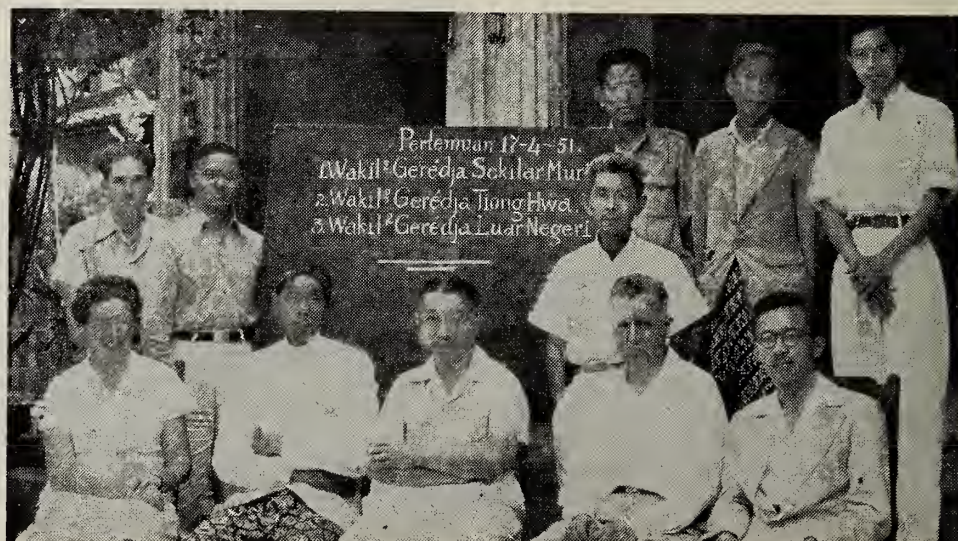 Pertemuan 17-4-51.
1. Wakil² Gerédja Sekitar Mur
2. Wakil² Gerédja Tiong Hwa.
3. Wakil² Gerédja Luar Negeri